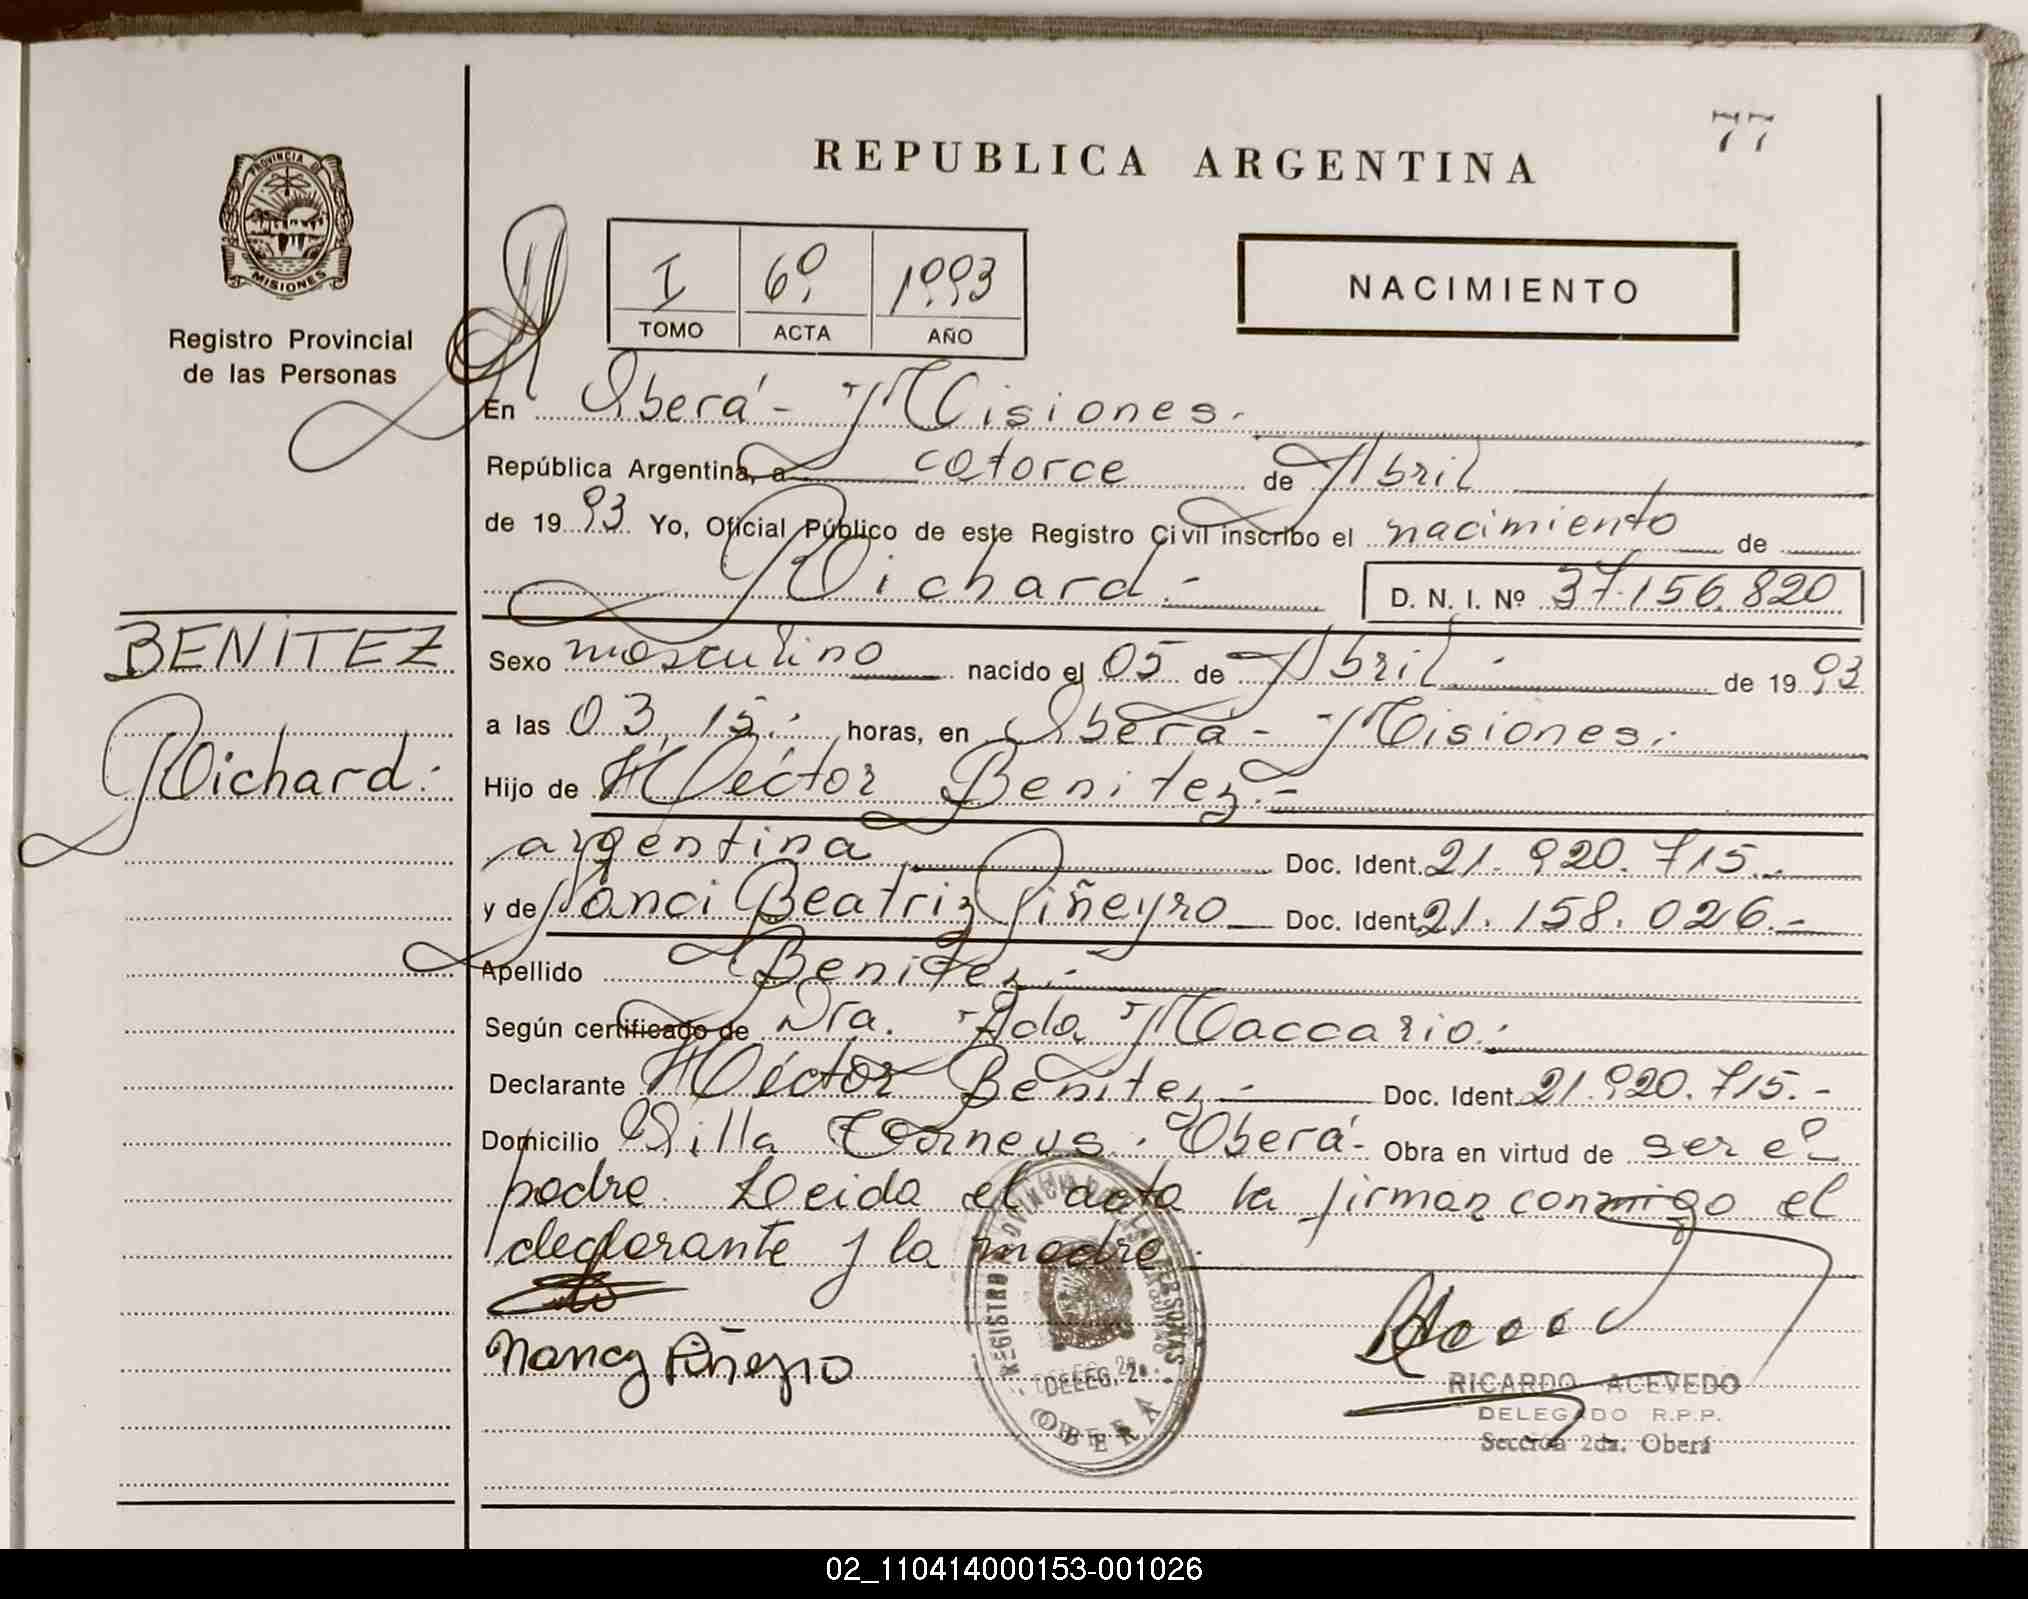 77
REPUBLICA ARGENTINA
PROVINCIA DE
MISIONES
Registro Provincial
de las Personas
I 69 1993
TOMO ACTA AÑO
NACIMIENTO
En Oberá - Misiones.
República Argentina, a catorce de Abril
de 1993 Yo, Oficial Público de este Registro Civil inscribo el nacimiento de
Richard.- D. N. I. Nº 37.156.820
BENITEZ
Richard.
Sexo masculino nacido el 05 de Abril de 1993
a las 03,15. horas, en Oberá - Misiones.
Hijo de Héctor Benitez.-
argentina Doc. Ident. 21.920.715.-
y de Nanci Beatriz Piñeyro Doc. Ident. 21.158.026.-
Apellido Benitez.-
Según certificado de Dra. Ada Maccario.
Declarante Héctor Benitez - Doc. Ident. 21.920.715.-
Domicilio Villa Torneus. Oberá- Obra en virtud de ser el
padre. Leida el acta la firman conmigo el
declarante y la madre.
Nancy Piñeyro
DELEG. 2a.
OBERA
RICARDO ACEVEDO
DELEGADO R.P.P.
Sección 2da. Oberá
02_110414000153-001026